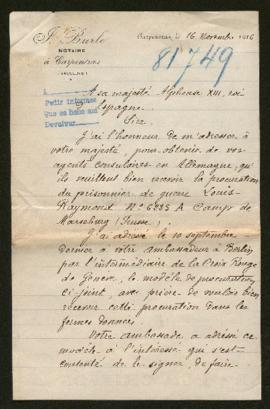 J. Burle
NOTAIRE
à Carpentras
(VAUCLUSE)
Carpentras, le 16 Novembre 1916
81749
Pedir informes
Que se haga
Devolver
A sa majesté Alphonse XIII, roi
d'Espagne.
Sire
J'ai l'honneur de m'adresser à
votre majesté, pour obtenir de vos
agents consulaires en Allemagne, qu'
ils veuillent bien recevoir la procuration
du prisonnier de guerre Louis
Raymond N° 6283 A Camp de
Merseburg (Prusse).
J'ai adressé le 10 septembre
dernier à votre ambassadeur à Berlin
par l'intermédiaire de la Croix Rouge
de Genève, le modèle de procuration
ci-joint, avec prière de vouloir bien
recevoir cette procuration dans les
formes données.
Votre ambassade a adressé ce
modèle à l'intéressé qui s'est
contenté de le signer, de faire